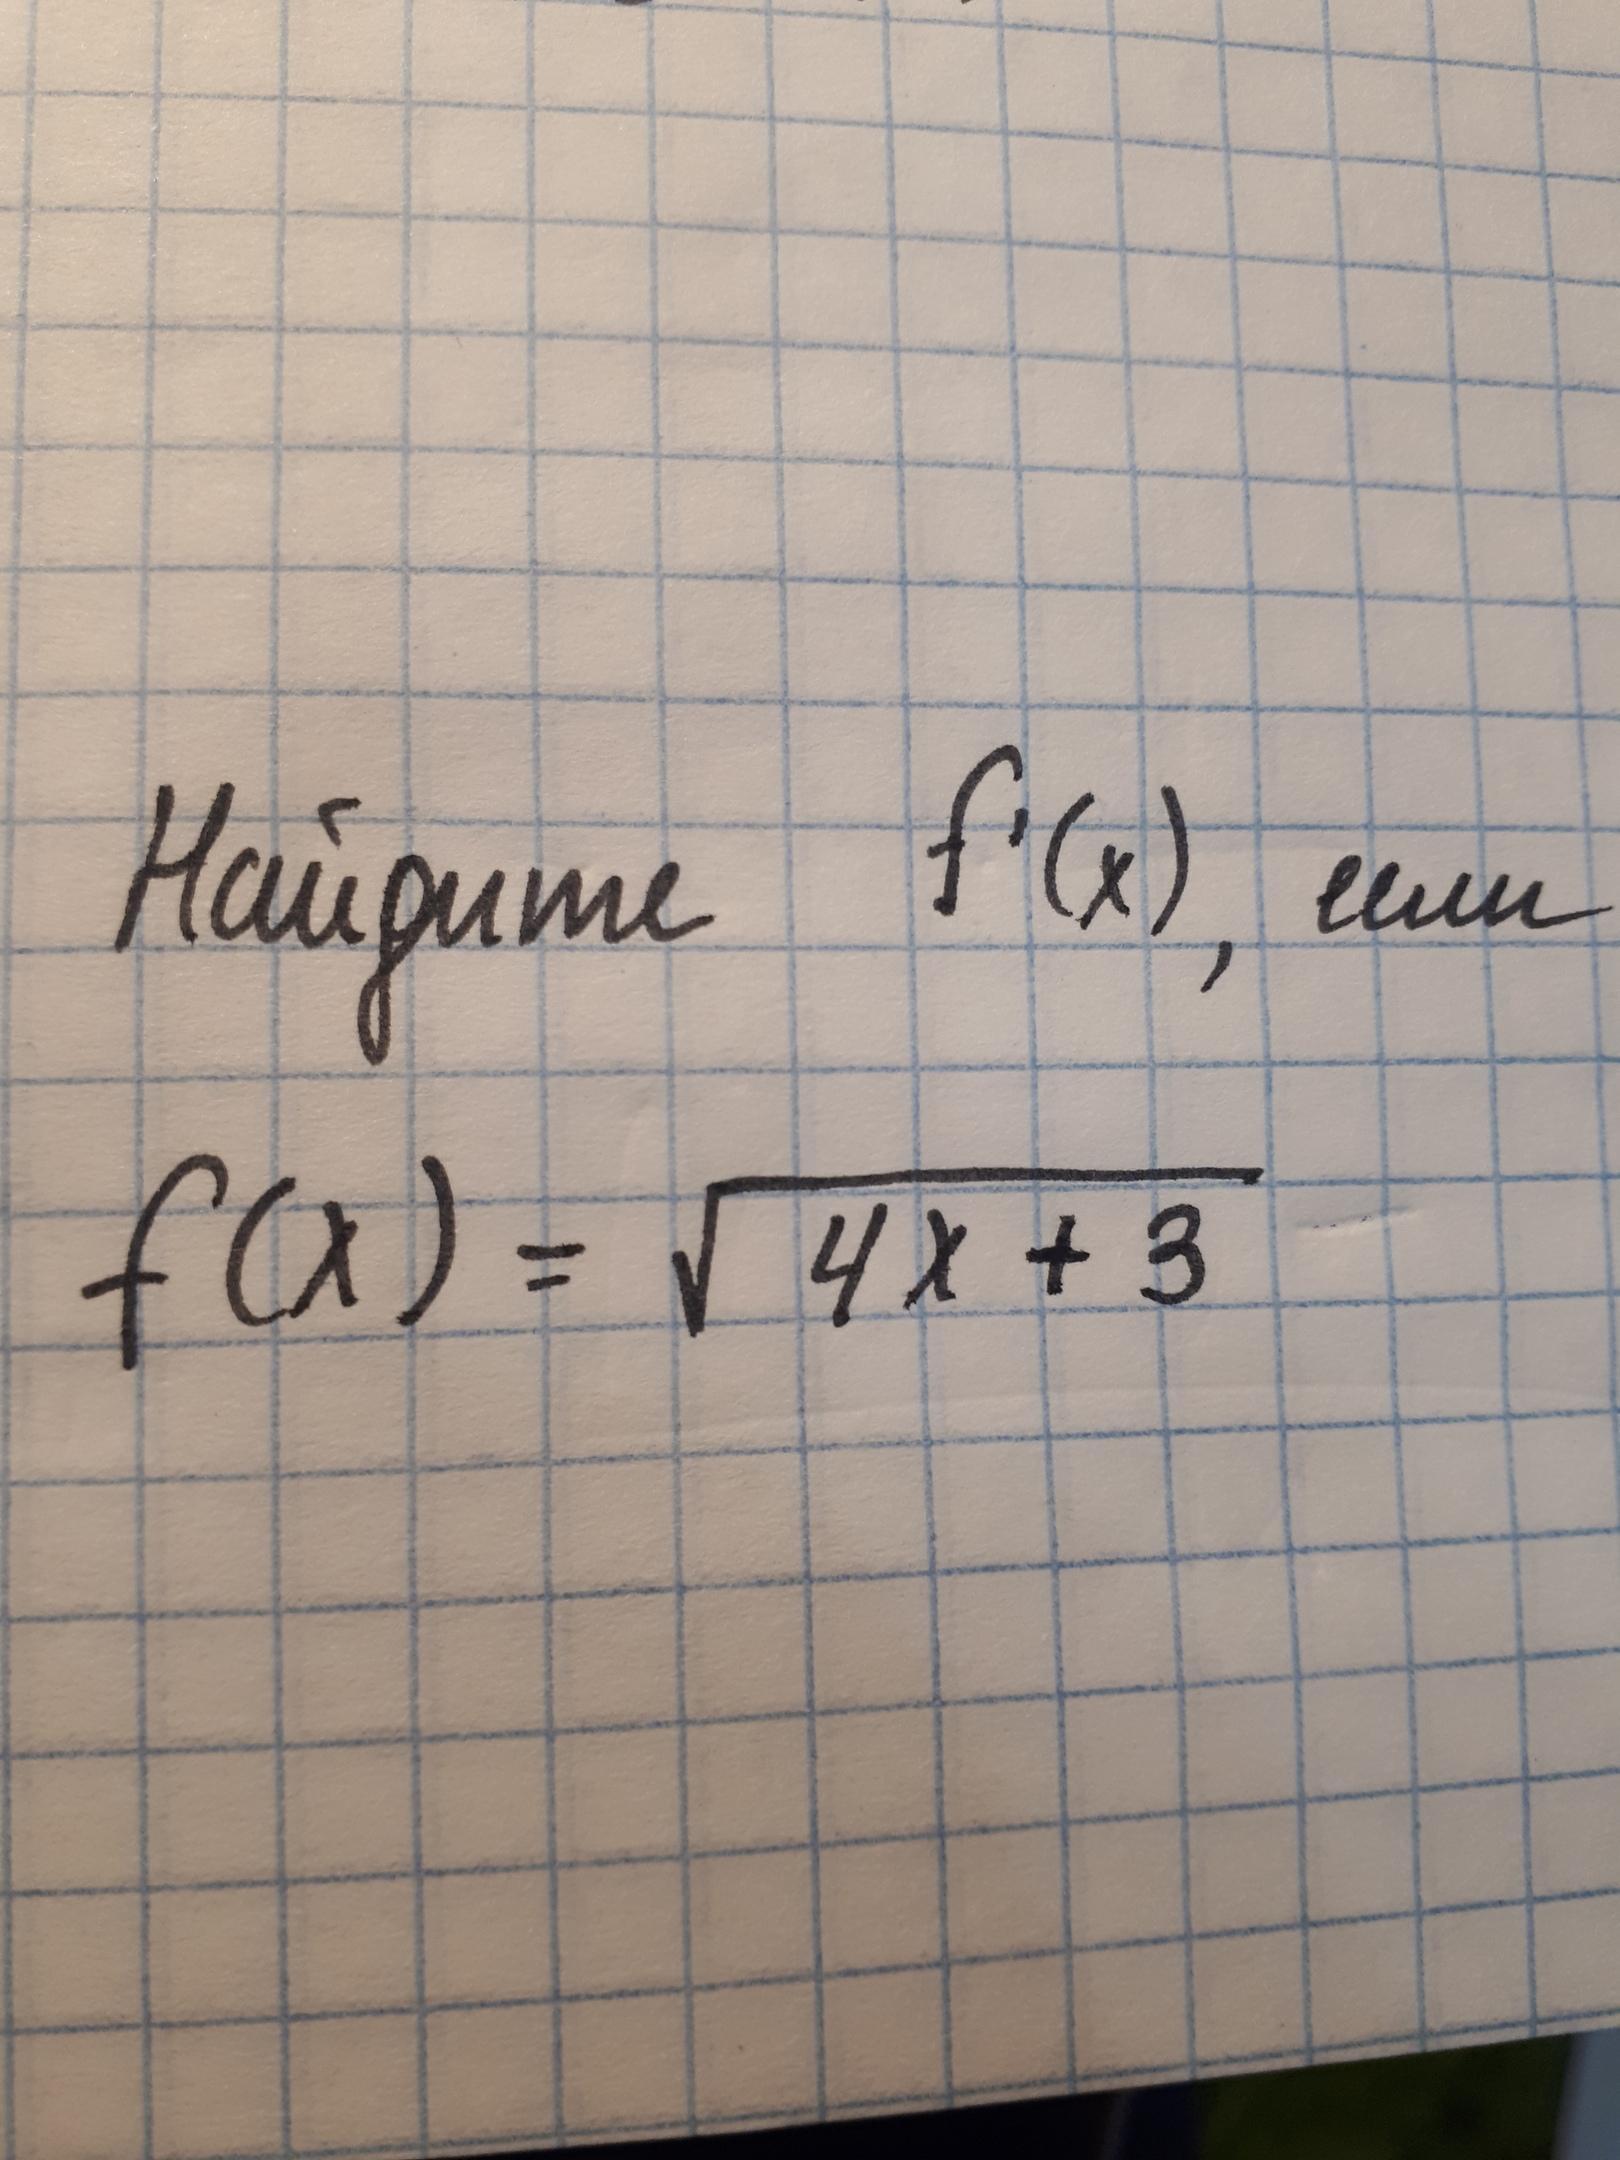 Найдите f'(x), если
f(x) = √4x + 3